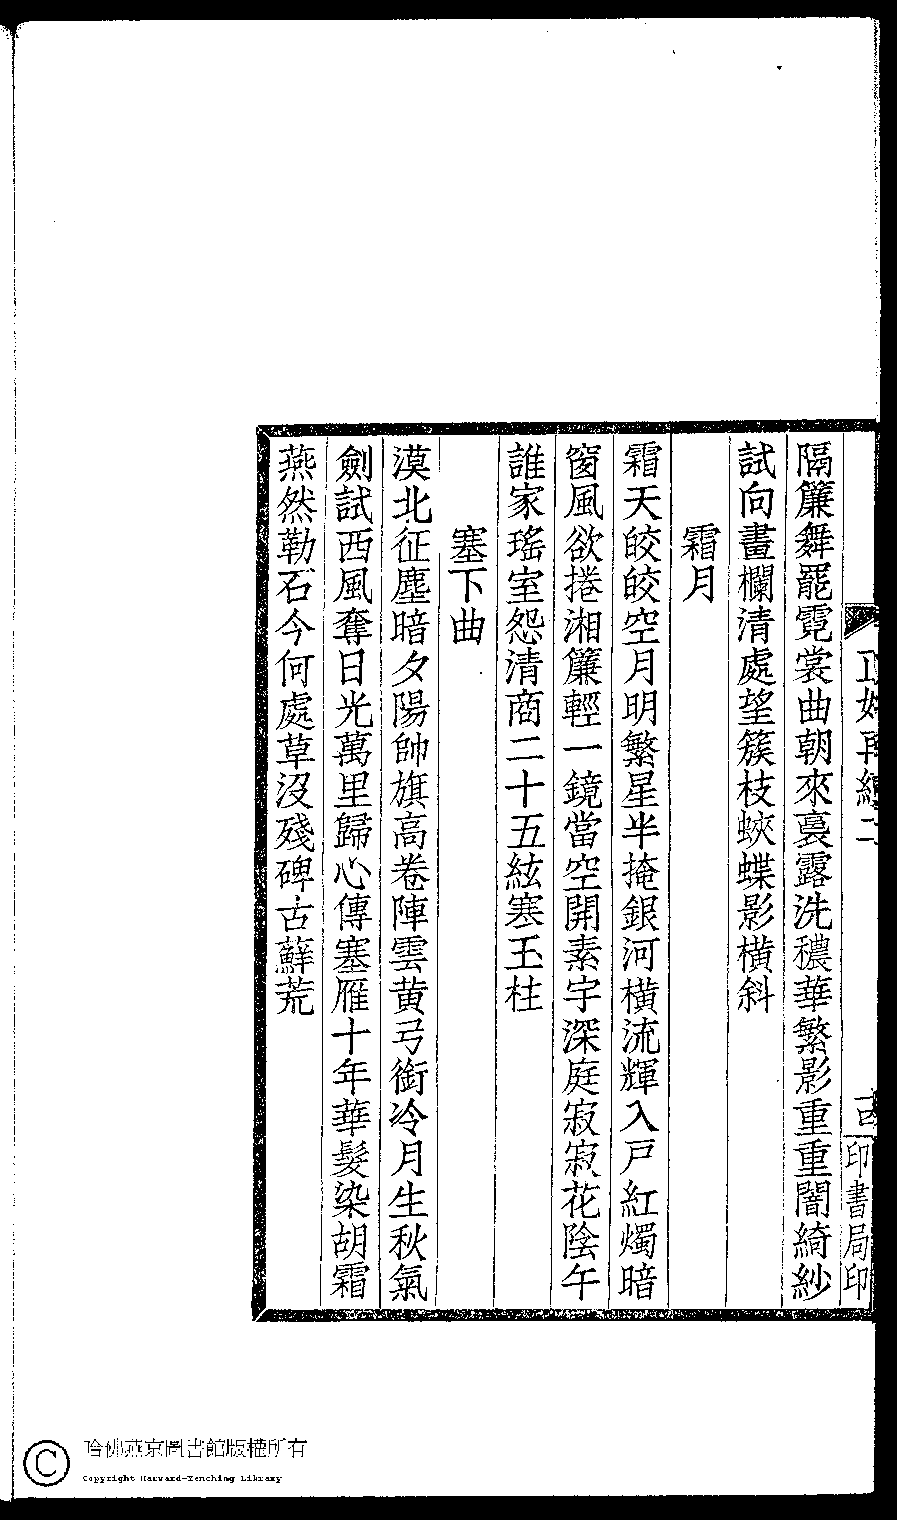 隔簾舞罷霓裳曲朝來裛露洗穠華繁影重重闇綺紗
試向畫欄清處望簇枝蛺蝶影橫斜
霜月
霜天皎皎空月明繁星半掩銀河橫流輝入戸紅燭暗
窗風欲捲湘簾輕一鏡當空開素宇深庭寂寂花陰午
誰家瑤室怨清商二十五絃寒玉柱
塞下曲
漠北征塵暗夕陽帥旗高卷陣雲黄弓銜冷月生秋氣
劍試西風奪日光萬里歸心傳塞雁十年華髮染胡霜
燕然勒石今何處草沒殘碑古蘚荒
印書局印
哈佛燕京圖書館版權所有
Copyright Harvard-Yenching Library